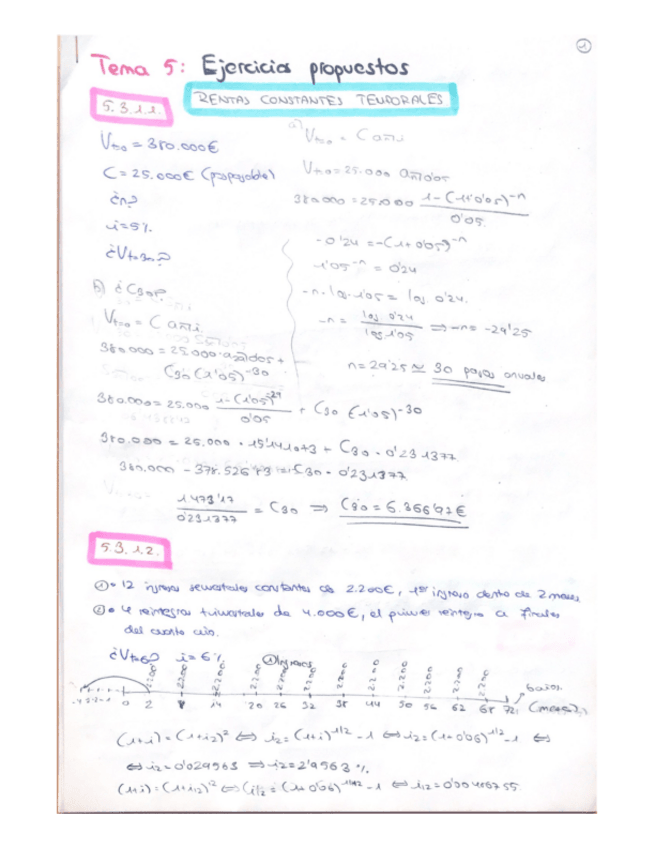 1
Tema 5: Ejercicios propuestos
RENTAS CONSTANTES TEMPORALES
5.3.1.1.
a)
Vt=0 = C an¬i
Vt=0 = 380.000€
C = 25.000€ (prepagable)
Vt=0 = 25.000 an¬0'05
¿n?
380.000 = 25.000 1-(1+0'05)^-n / 0'05
i = 5%
-0'24 = -(1+0'05)^-n
1'05^-n = 0'24
-n · log 1'05 = log 0'24
-n = log 0'24 / log 1'05 ⇒ -n = -29'25
n = 29'25 ≃ 30 pagos anuales
b) ¿C30?
Vt=0 = C an¬i
380.000 = 25.000 · a29¬0'05 +
C30 (1'05)^-30
380.000 = 25.000 1-(1'05)^-29 / 0'05 + C30 (1'05)^-30
380.000 = 25.000 · 15'141073 + C30 · 0'231377
380.000 - 378.526'83 = C30 · 0'231377
1473'17 / 0'231377 = C30 ⇒ C30 = 6.366'92€
5.3.1.2.
① • 12 ingresos semestrales constantes de 2.200€, 1er ingreso dentro de 2 meses
② • 4 reintegros trimestrales de 4.000€, el primer reintegro a finales
del cuarto año.
¿Vt=6? i = 6%
① Ingresos
2.200 2.200 2.200 2.200 2.200 2.200 2.200 2.200 2.200 2.200 2.200 2.200
0 2 8 14 20 26 32 38 44 50 56 62 68 72 (meses)
(1+i) = (1+i2)^2 ⇔ i2 = (1+i)^1/2 - 1 ⇔ i2 = (1+0'06)^1/2 - 1 ⇔
⇔ i2 = 0'029563 ⇒ i2 = 2'9563 %
(1+i) = (1+i12)^12 ⇔ i12 = (1+0'06)^1/12 - 1 ⇔ i12 = 0'00486755